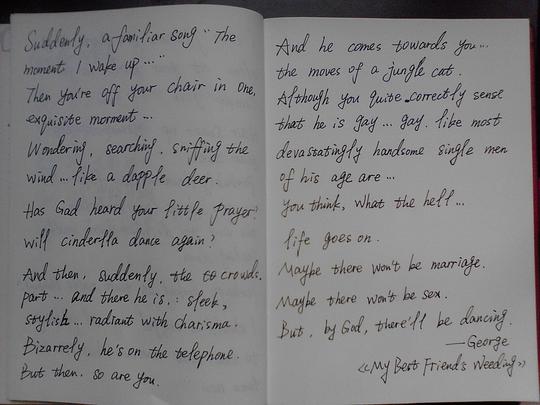 Suddenly, a familiar song " The
moment I wake up ..."
Then you're off your chair in one,
exquisite morment ...
Wondering, searching, sniffing the
wind ... like a dapple deer.
Has God heard your little prayer?
will cinderlla dance again?
And then, suddenly, the crowds.
part ... and there he is, : sleek,
stylish ... radiant with charisma.
Bizarrely, he's on the telephone.
But then, so are you.
And he comes towards you ...
the moves of a jungle cat.
Although you quite correctly sense
that he is gay ... gay. like most
devastatingly handsome single men
of his age are ...
you think, what the hell ...
life goes on.
Maybe there won't be marriage.
Maybe there won't be sex.
But, by God, there'll be dancing.
—George
《My Best Friend's Weeding》